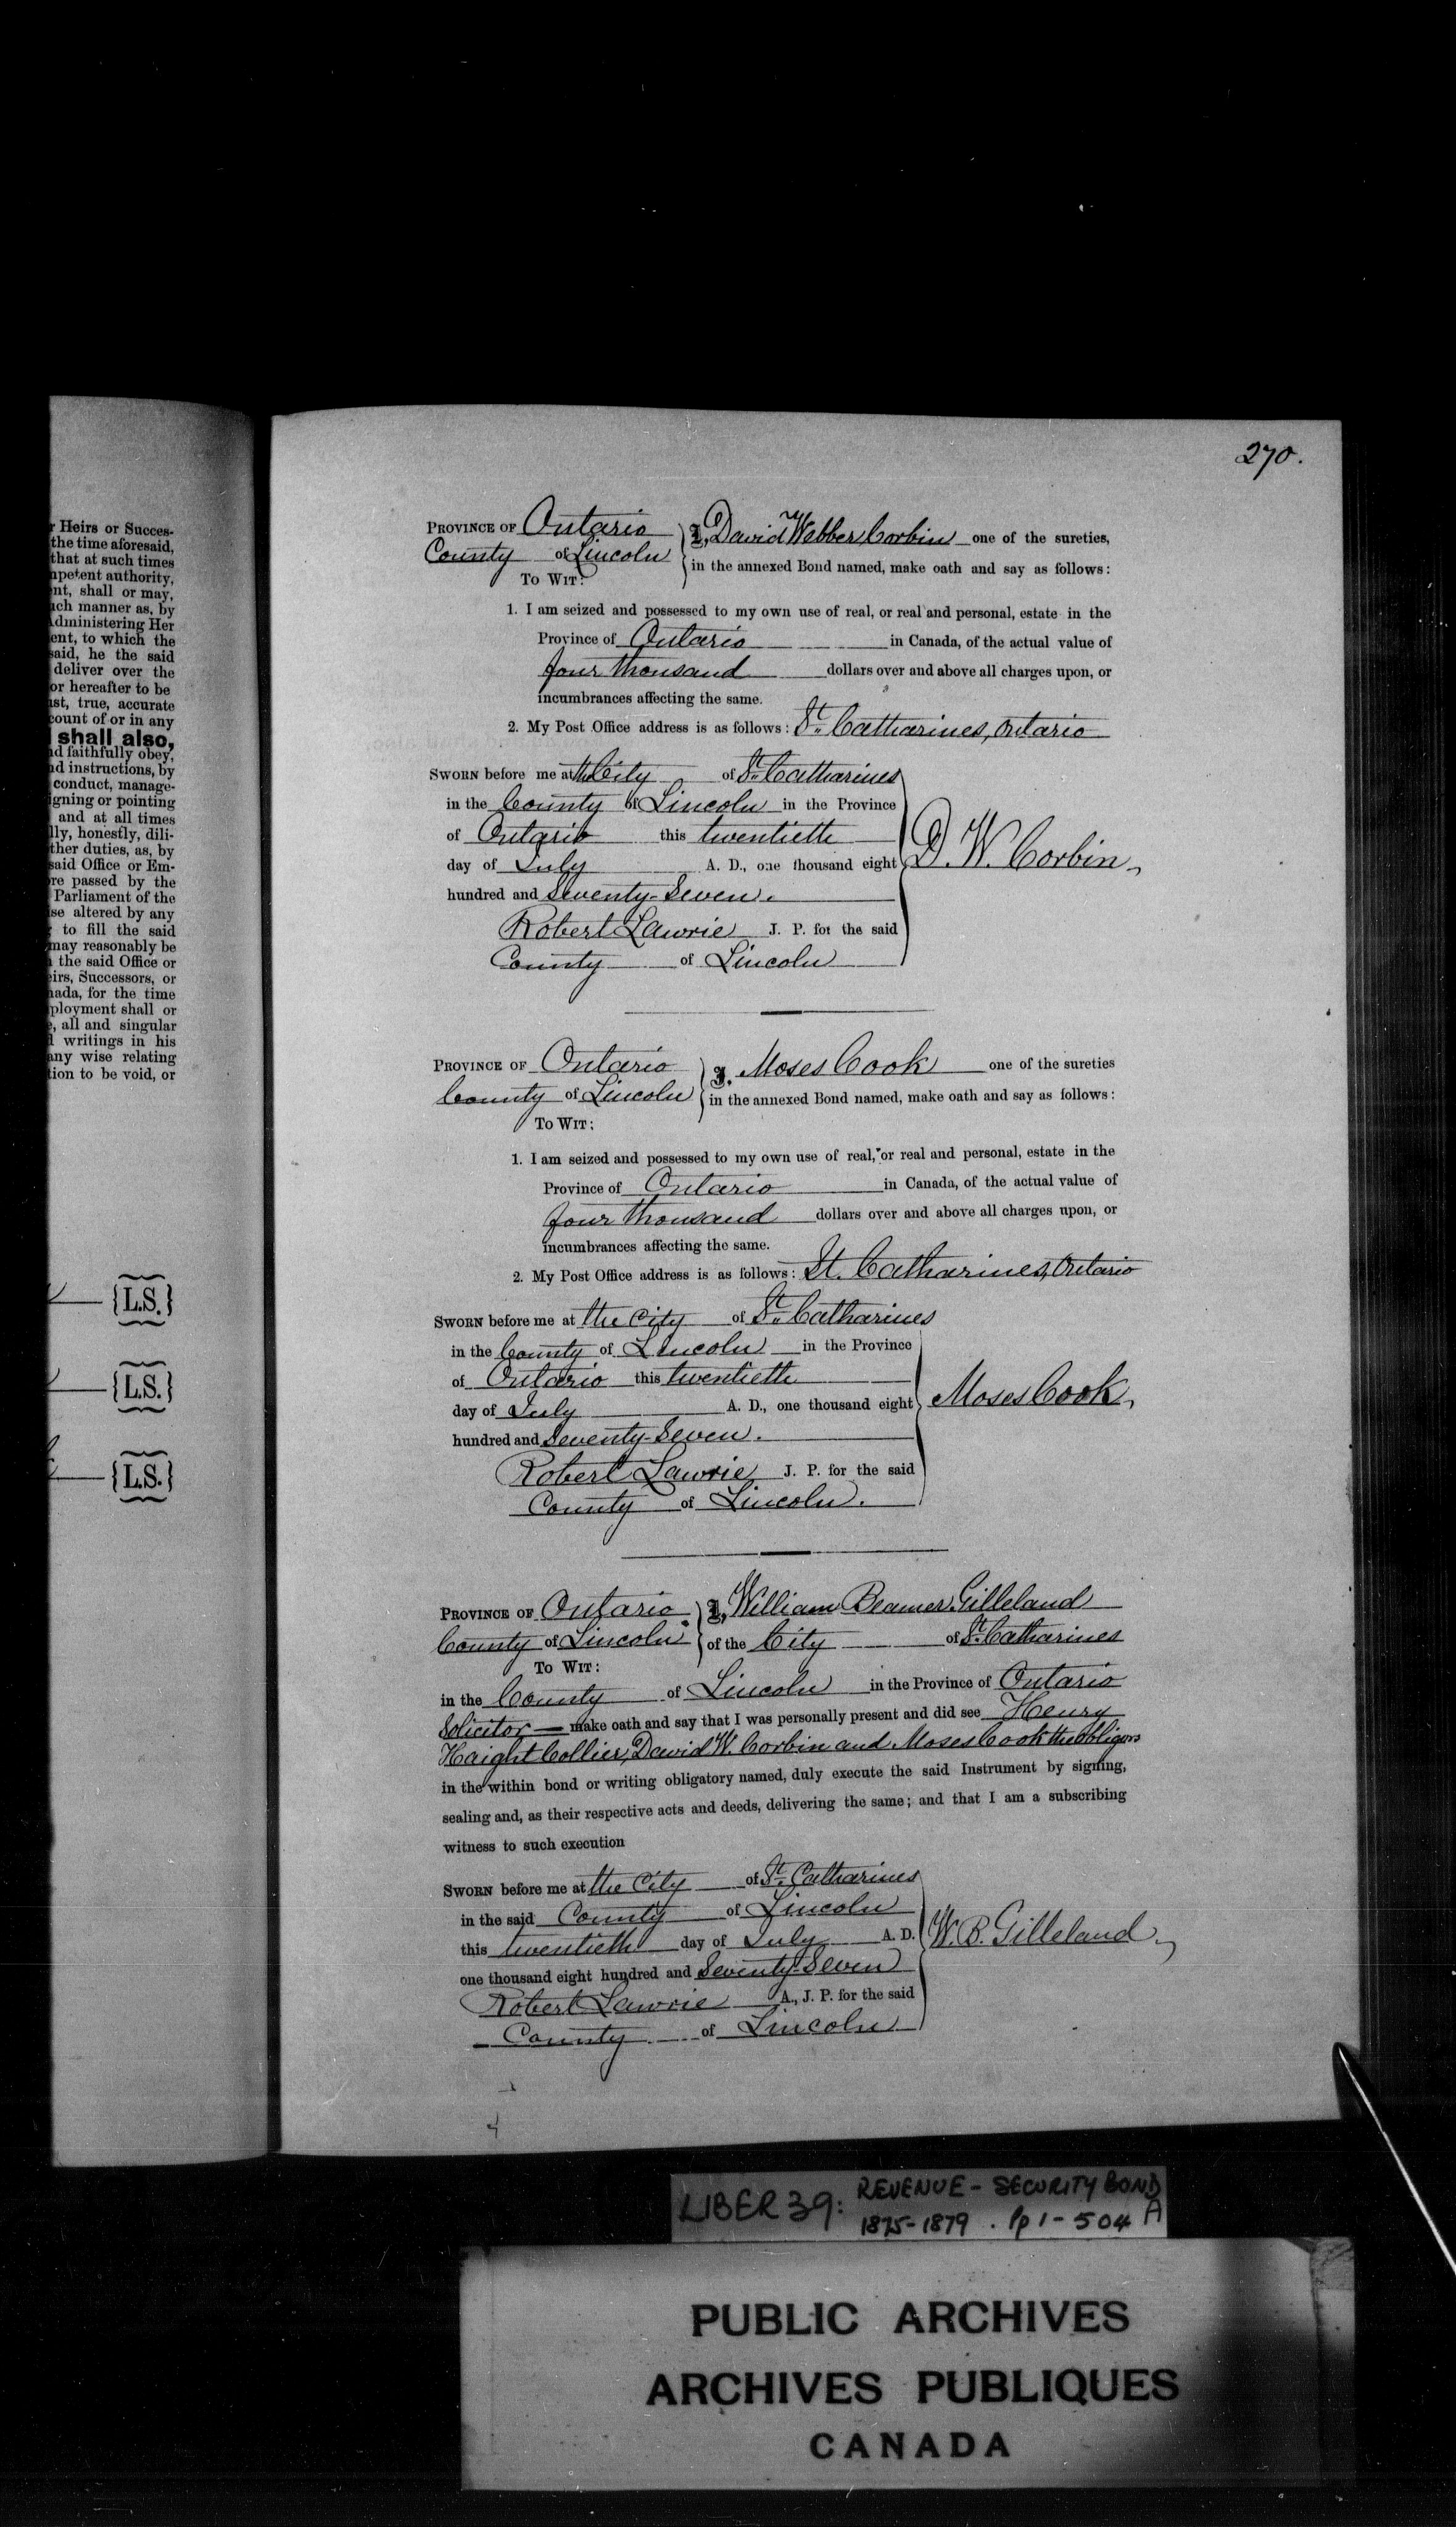 r Heirs or Succes-
the time aforesaid,
that at such times
petent authority,
nt, shall or may,
ch manner as, by
dministering Her
ent, to which the
said, he the said
deliver over the
or hereafter to be
st, true, accurate
count of or in any
shall also,
d faithfully obey,
d instructions, by
conduct, manage-
gning or pointing
and at all times
lly, honestly, dili-
ther duties, as, by
said Office or Em-
re passed by the
Parliament of the
se altered by any
to fill the said
may reasonably be
the said Office or
irs, Successors, or
ada, for the time
ployment shall or
, all and singular
writings in his
any wise relating
tion to be void, or
{L.S.}
{L.S.}
{L.S.}
270.
PROVINCE OF Ontario } I, David Webber Corbin one of the sureties,
County of Lincoln } in the annexed Bond named, make oath and say as follows:
TO WIT:
1. I am seized and possessed to my own use of real, or real and personal, estate in the
Province of Ontario in Canada, of the actual value of
four thousand dollars over and above all charges upon, or
incumbrances affecting the same.
2. My Post Office address is as follows: St. Catharines, Ontario
SWORN before me at the City of St. Catharines
in the County of Lincoln in the Province
of Ontario this twentieth
day of July A. D., one thousand eight } D. W. Corbin,
hundred and Seventy-Seven.
Robert Lawrie J. P. for the said
County of Lincoln
PROVINCE OF Ontario } I, Moses Cook one of the sureties
County of Lincoln } in the annexed Bond named, make oath and say as follows:
TO WIT:
1. I am seized and possessed to my own use of real, or real and personal, estate in the
Province of Ontario in Canada, of the actual value of
four thousand dollars over and above all charges upon, or
incumbrances affecting the same.
2. My Post Office address is as follows: St. Catharines, Ontario
SWORN before me at the City of St. Catharines
in the County of Lincoln in the Province
of Ontario this twentieth
day of July A. D., one thousand eight } Moses Cook,
hundred and Seventy-Seven.
Robert Lawrie J. P. for the said
County of Lincoln.
PROVINCE OF Ontario } I, William Beamer Gilleland
County of Lincoln } of the City of St. Catharines
TO WIT:
in the County of Lincoln in the Province of Ontario
Solicitor make oath and say that I was personally present and did see Henry
Haight Collier, David W. Corbin and Moses Cook the obligors
in the within bond or writing obligatory named, duly execute the said Instrument by signing,
sealing and, as their respective acts and deeds, delivering the same; and that I am a subscribing
witness to such execution
SWORN before me at the City of St. Catharines
in the said County of Lincoln
this twentieth day of July A. D. } W. B. Gilleland,
one thousand eight hundred and Seventy-Seven
Robert Lawrie A., J. P. for the said
County of Lincoln
LIBER 39: REVENUE - SECURITY BOND
1875-1879 . Pp 1 - 504 A
PUBLIC ARCHIVES
ARCHIVES PUBLIQUES
CANADA